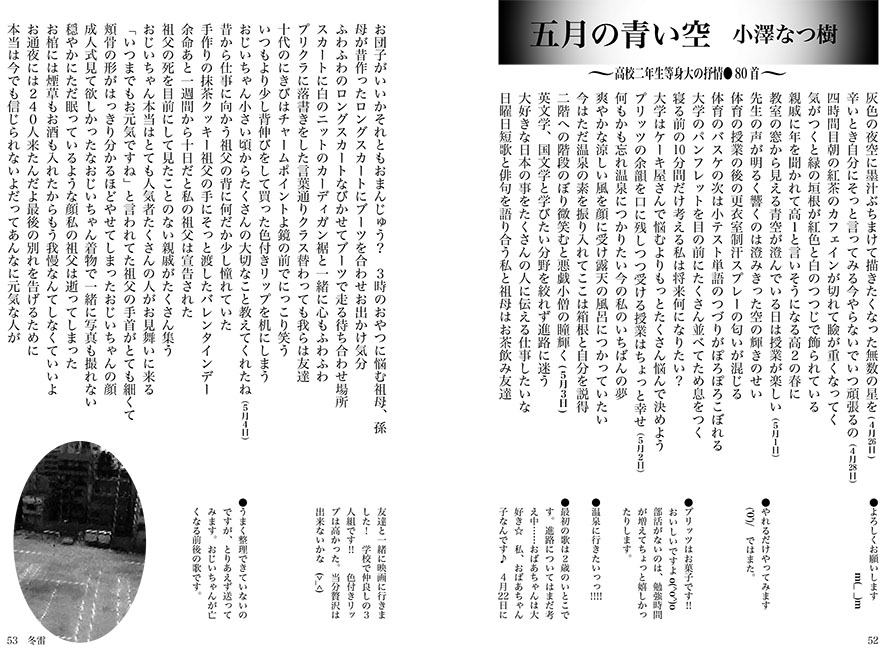 五月の青い空　小澤なつ樹
〜高校二年生等身大の抒情●80首〜
灰色の夜空に墨汁ぶちまけて描きたくなった無数の星を（4月26日）
辛いとき自分にそっと言ってみる今やらないでいつ頑張るの（4月28日）
四時間目朝の紅茶のカフェインが切れて瞼が重くなってく
気がつくと緑の垣根が紅色と白のつつじで飾られている
親戚に年を聞かれて高１と言いそうになる高２の春に
教室の窓から見える青空が澄んでいる日は授業が楽しい（5月1日）
先生の声が明るく響くのは澄みきった空の輝きのせい
体育の授業の後の更衣室制汗スプレーの匂いが混じる
体育のバスケの次は小テスト単語のつづりがぽろぽろこぼれる
大学のパンフレットを目の前にたくさん並べてため息をつく
寝る前の10分間だけ考える私は将来何になりたい？
大学はケーキ屋さんで悩むよりもっとたくさん悩んで決めよう
プリッツの余韻を口に残しつつ受ける授業はちょっと幸せ（5月2日）
何もかも忘れ温泉につかりたい今の私のいちばんの夢
爽やかな涼しい風を顔に受け露天の風呂につかっていたい
今はただ温泉の素を振り入れてここは箱根と自分を説得
二階への階段のぼり微笑むと悪戯小僧の瞳輝く（5月3日）
英文学、国文学と学びたい分野を絞れず進路に迷う
大好きな日本の事をたくさんの人に伝える仕事したいな
日曜日短歌と俳句を語り合う私と祖母はお茶飲み友達
●よろしくお願いします
m(_ _)m
●やれるだけやってみます
(^0^)/　ではまた。
●プリッツはお菓子です!!
おいしいですよo(^o^)o
部活がないのは、勉強時間
が増えてちょっと嬉しかっ
たりします。
●温泉に行きたいっっ!!!!
●最初の歌は２歳のいとこで
す。進路についてはまだ考
え中……おばあちゃんは大
好き☆　私、おばあちゃん
子なんです♪　４月22日に
52
お団子がいいかそれともおまんじゅう？　３時のおやつに悩む祖母、孫
母が昔作ったロングスカートにブーツを合わせお出かけ気分
ふわふわのロングスカートなびかせてブーツで走る待ち合わせ場所
スカートに白のニットのカーディガン裾と一緒に心もふわふわ
プリクラに落書きをした言葉通りクラス替わっても我らは友達
十代のにきびはチャームポイントよ鏡の前でにっこり笑う
いつもより少し背伸びをして買った色付きリップを机にしまう
おじいちゃん小さい頃からたくさんの大切なこと教えてくれたね（5月4日）
昔から仕事に向かう祖父の背に何だか少し憧れていた
手作りの抹茶クッキー祖父の手にそっと渡したバレンタインデー
余命あと一週間から十日だと私の祖父は宣告された
祖父の死を目前にして見たことのない親戚がたくさん集う
おじいちゃん本当はとても人気者たくさんの人がお見舞いに来る
「いつまでもお元気ですね」と言われてた祖父の手首がとても細くて
頬骨の形がはっきり分かるほどやせてしまったおじいちゃんの顔
成人式見て欲しかったなおじいちゃん着物で一緒に写真も撮れない
穏やかにただ眠っているような顔私の祖父は逝ってしまった
お棺には煙草もお酒も入れたからもう我慢なんてしなくていいよ
お通夜には２４０人来たんだよ最後の別れを告げるために
本当は今でも信じられないよだってあんなに元気な人が
友達と一緒に映画に行きま
した！　学校で仲良しの３
人組です!!　色付きリッ
プは高かった。当分贅沢は
出来ないかな　(>_<)
●うまく整理できていないの
ですが、とりあえず送って
みます。おじいちゃんが亡
くなる前後の歌です。
53　冬雷